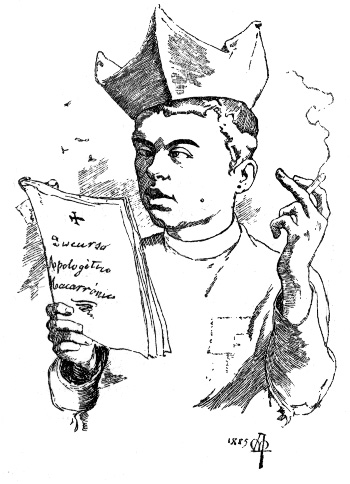 Discurso
Apologético
Macarrónico
1885